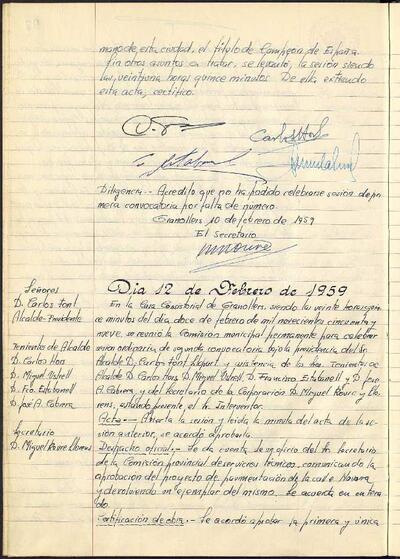 mano de esta ciudad, el título de Campeon de España.
Sin otros asuntos a tratar, se levantó la sesión siendo
las veintiuna horas quince minutos. De ella extiendo
esta acta, certifico.
Diligencia.- Acredito que no ha podido celebrarse sesión de pri-
mera convocatoria por falta de número.
Granollers 10 de febrero de 1959
El secretario
Señores
D. Carlos Font
Alcalde-Presidente
Tenientes de Alcalde
D. Carlos Hors
D. Miguel
D. Fco. Estabanell
D. José A. Cabrera
Secretario
D. Miguel Roure Llorens
Dia 12 de Febrero de 1959
En la Casa Consistorial de Granollers, siendo las veinte horas quin-
ce minutos del día doce de febrero de mil novecientos cincuenta y
nueve, se reunió la Comisión municipal permanente para celebrar
sesión ordinaria de segunda convocatoria bajo la presidencia del Sr.
Alcalde D. Carlos Font Llopart y asistencia de los Tenientes de
Alcalde D. Carlos Hors, D. Miguel D. Francisco Estabanell y D. José
A. Cabrera y del Secretario de la Corporación D. Miguel Roure y Llo-
rens, estando presente el Sr. Interventor.
Acta.- Abierta la sesión y leida la minuta del acta de la se-
sión anterior, se acordó aprobarla.
Despacho oficial.- Se da cuenta de un oficio del Sr. Secretario
de la Comisión provincial de servicios técnicos, comunicando la
aprobación del proyecto de pavimentación de la calle Navarra
y devolviendo un ejemplar del mismo. Se acuerda en entera-
do.
Certificación de obra.- Se acordó aprobar la primera y única